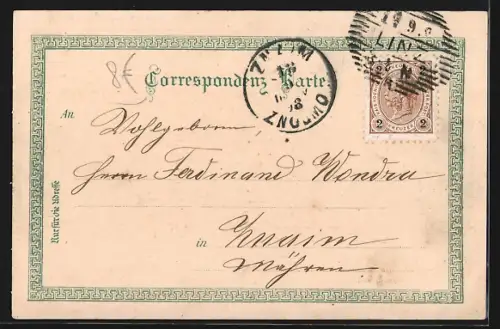 8€
Correspondenz-Karte.
An
Wohlgeboren
Herrn Ferdinand Wondra
in Znaim
Mähren
Nur für die Adresse
ZNAIM
ZNOJMO
98
LINZ
2 2